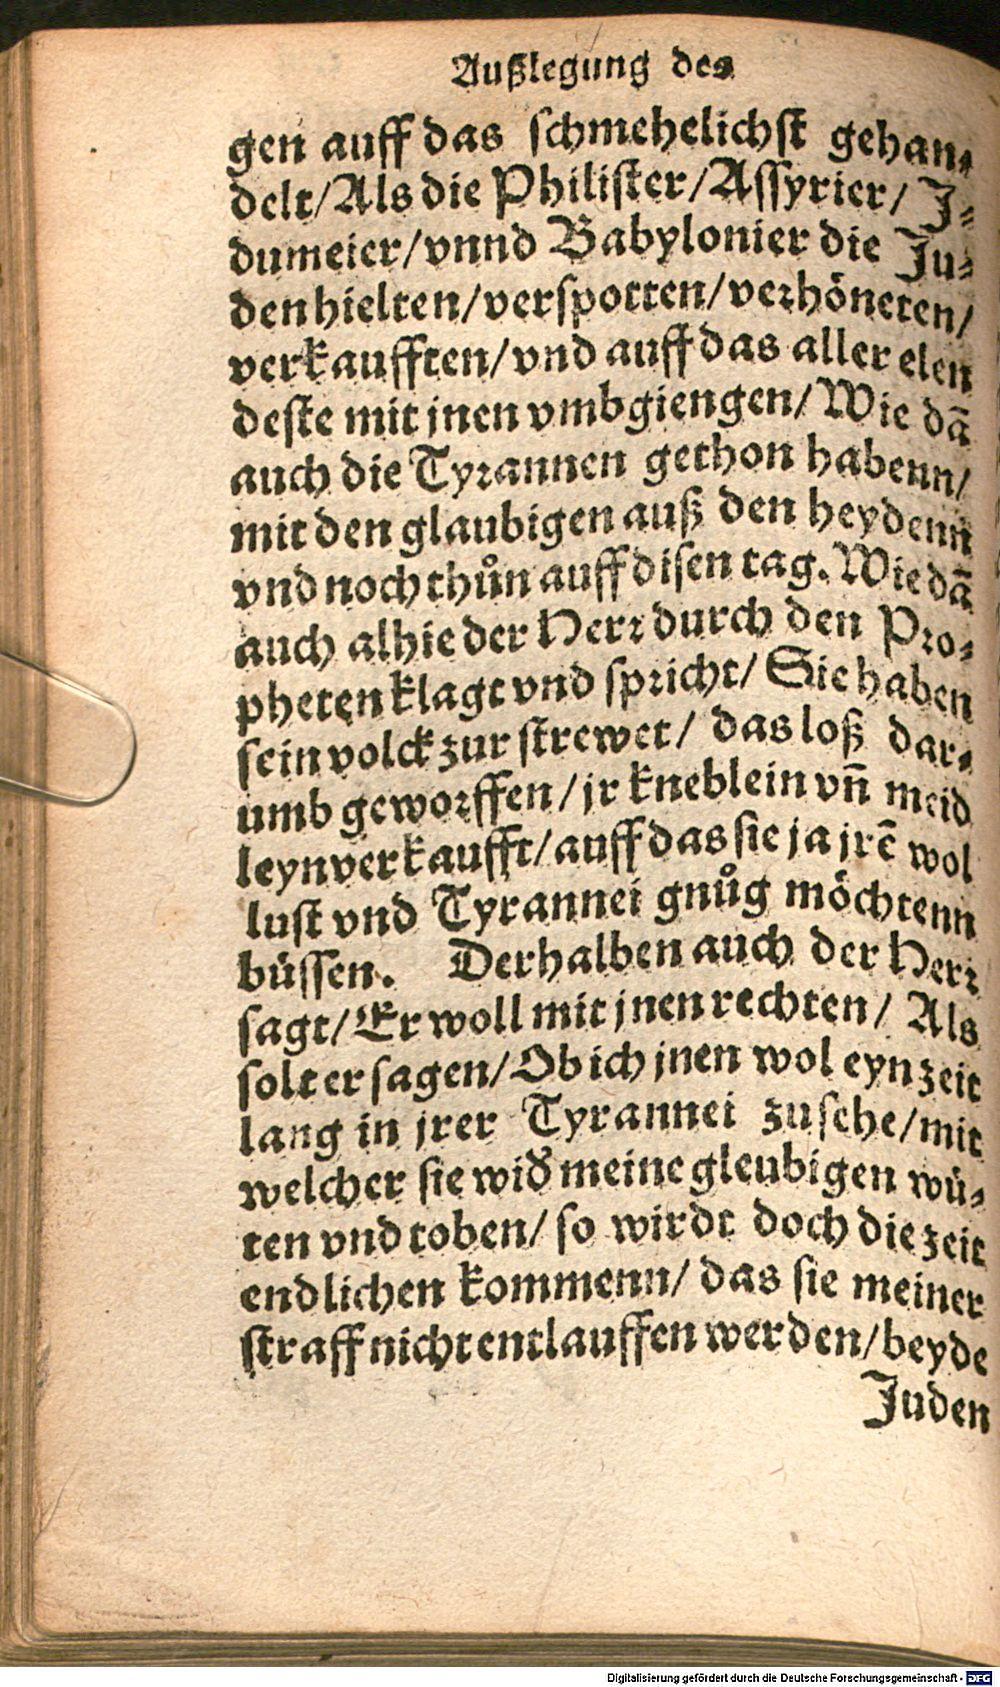 Außlegung des
gen auff das schmehelichst gehan⸗
delt/Als die Philister/Assyrier/ J⸗
dumeier/vnnd Babylonier die Ju⸗
den hielten/verspotten/verhöneten/
verkaufften/vnd auff das aller elen
deste mit jnen vmbgiengen/ Wie dā
auch die Tyrannen gethon habenn/
mit den glaubigen auß den heydenn
vnd noch thůn auff disen tag. Wie dā
auch alhie der Herr durch den Pro⸗
pheten klagt vnd spricht/ Sie haben
sein volck zur strewet/ das loß dar⸗
umb geworffen/jr kneblein vn̄ meid
leyn verkaufft/auff das sie ja jrē wol
lust vnd Tyrannei gnůg möchtenn
büssen. Derhalben auch der Herr
sagt/ Er woll mit jnen rechten/ Als
solt er sagen/Ob ich jnen wol eyn zeit
lang in jrer Tyrannei zusehe/mit
welcher sie wid̄ meine gleubigen wü⸗
ten vnd toben/ so wirdt doch die zeit
endlichen kommenn/ das sie meiner
straff nicht entlauffen werden/beyde
Juden
Digitalisierung gefördert durch die Deutsche Forschungsgemeinschaft - DFG